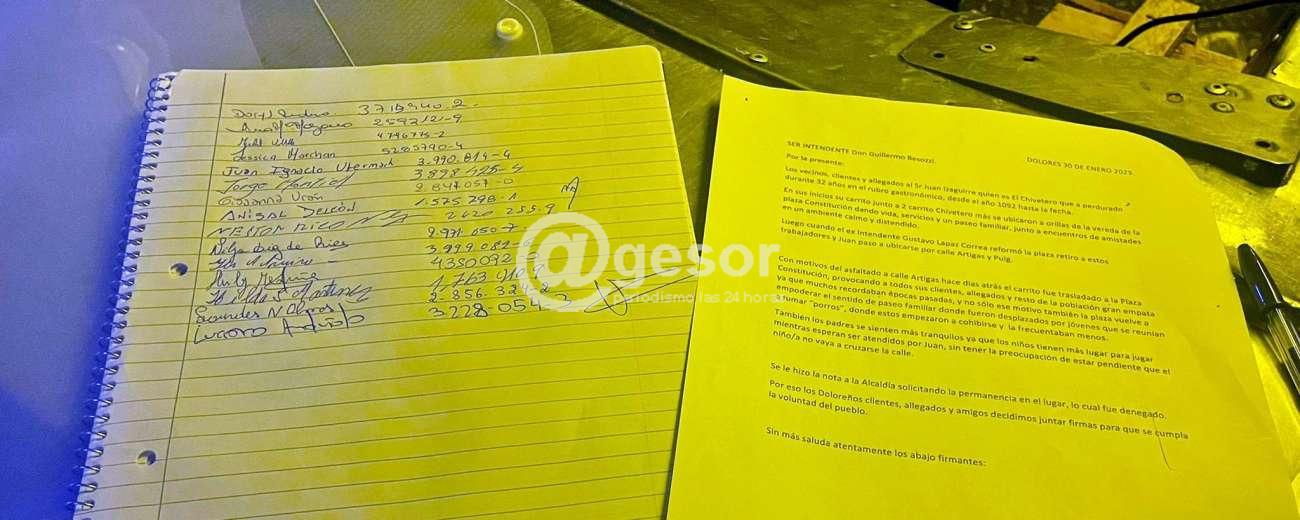 Jessica Marchan 5285790-4
Juan Ignacio Utermark 3.990.814-4
3.898.425-4
Giovanna Viron 2.847057-0
ANIBAL DELEÓN 1.575.798-1
NESTOR RICO 2620 255.9
2.971.050-7
3.999.082-6
4350092
1.763.410.9
2.856.324-2
Lourdes N Olmos 3228-054-3
@gesor
periodismo las 24 horas
DOLORES 30 DE ENERO 2025.
SER INTENDENTE Don Guillermo Besozzi.
Por la presente:
Los vecinos, clientes y allegados al Sr Juan Izaguirre quien es El Chivetero que a perdurado
durante 32 años en el rubro gastronómico, desde el año 1092 hasta la fecha.
En sus inicios su carrito junto a 2 carrito Chivetero más se ubicaron a orillas de la vereda de la
plaza Constitución dando vida, servicios y un paseo familiar, junto a encuentros de amistades
en un ambiente calmo y distendido.
Luego cuando el ex Intendente Gustavo Lapaz Correa reformó la plaza retiro a estos
trabajadores y Juan paso a ubicarse por calle Artigas y Puig.
Con motivos del asfaltado a calle Artigas hace días atrás el carrito fue trasladado a la Plaza
Constitución, provocando a todos sus clientes, allegados y resto de la población gran empatía
ya que muchos recordaban épocas pasadas, y no sólo ese motivo también la plaza vuelve a
empoderar el sentido de paseo familiar donde fueron desplazados por jóvenes que se reunían
afumar "porros", donde estos empezaron a cohibirse y la frecuentaban menos.
También los padres se sienten más tranquilos ya que los niños tienen más lugar para jugar
mientras esperan ser atendidos por Juan, sin tener la preocupación de estar pendiente que el
niño/a no vaya a cruzarse la calle.
Se le hizo la nota a la Alcaldía solicitando la permanencia en el lugar, lo cual fue denegado.
Por eso los Doloreños clientes, allegados y amigos decidimos juntar firmas para que se cumpla
la voluntad del pueblo.
Sin más saluda atentamente los abajo firmantes: